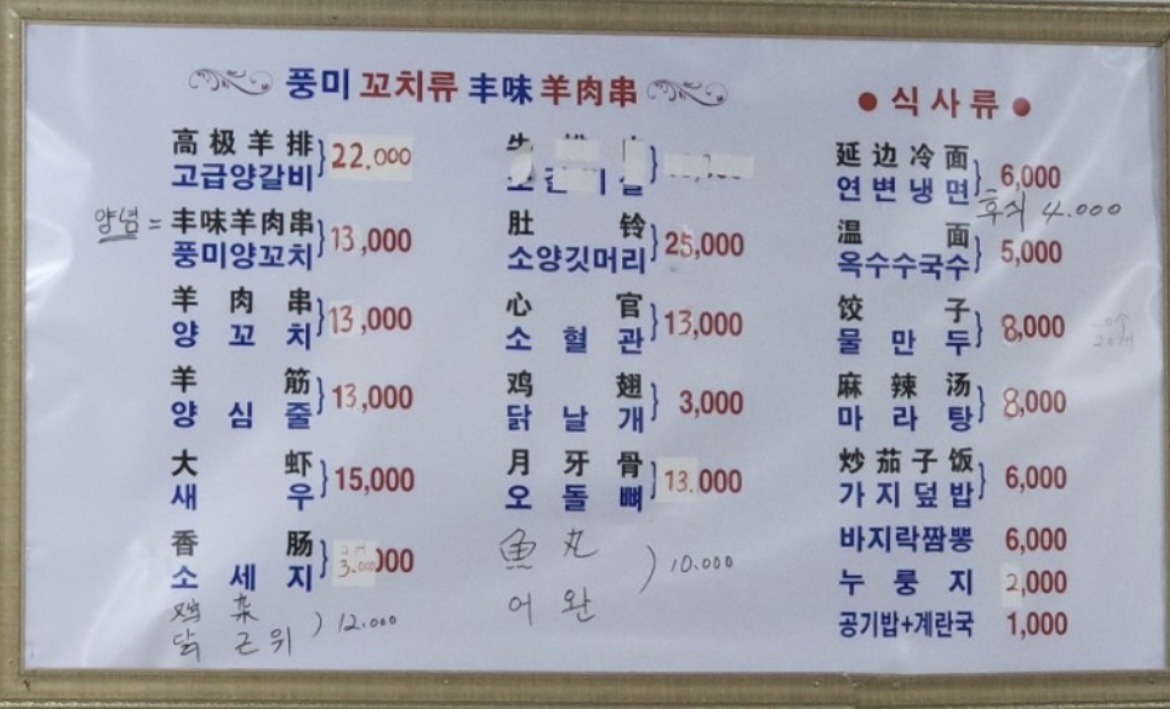 풍미 꼬치류 丰味 羊肉串
高极羊排
고급양갈비 22.000
양념 = 丰味羊肉串
풍미양꼬치 13,000
羊肉串
양꼬치 13,000
羊筋
양심줄 13,000
大虾
새우 15,000
香肠
소세지 3.000
鸡杂
닭근위 12.000
肚铃
소양깃머리 25,000
心官
소혈관 13,000
鸡翅
닭날개 3,000
月牙骨
오돌뼈 13.000
魚丸
어완 10.000
● 식사류 ●
延边冷面
연변냉면 6,000
후식 4.000
温面
옥수수국수 5,000
饺子
물만두 8,000
麻辣汤
마라탕 8,000
炒茄子饭
가지덮밥 6,000
바지락짬뽕 6,000
누룽지 2,000
공기밥+계란국 1,000